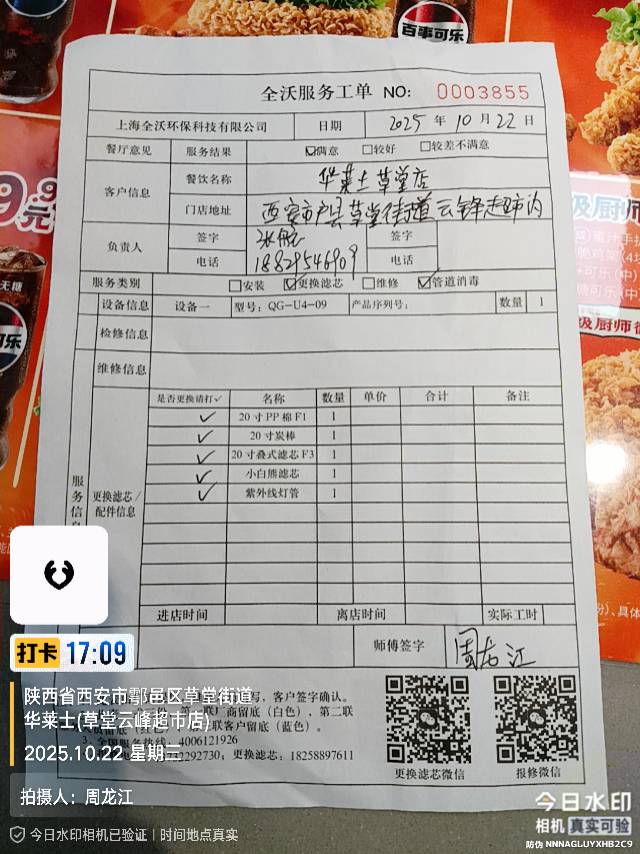 百事可乐
全沃服务工单 NO: 0003855
上海全沃环保科技有限公司 日期 2025 年 10 月 22 日
餐厅意见 服务结果 ☑满意 □较好 □较差不满意
客户信息 餐饮名称 华莱士草堂店
门店地址 西安市户县草堂街道云锋超市内
负责人 签字 签字
电话 18829546909 电话
服务类别 □安装 ☑更换滤芯 □维修 ☑管道消毒
设备信息 设备一 型号: QG-U4-09 产品序列号: 数量 1
检修信息
维修信息
服务信息
更换滤芯/配件信息
是否更换请打✓ 名称 数量 单价 合计 备注
✓ 20寸PP棉F1 1
✓ 20寸炭棒 1
✓ 20寸叠式滤芯F3 1
✓ 小白熊滤芯 1
✓ 紫外线灯管 1
进店时间 离店时间 实际工时
师傅签字 周龙江
写, 客户签字确认。
商留底(白色), 第二联
联客户留底(蓝色)。
3、全国服务热线: 4006121926
2292730, 更换滤芯: 18258897611
更换滤芯微信 报修微信
打卡 17:09
陕西省西安市鄠邑区草堂街道
华莱士(草堂云峰超市店)
2025.10.22 星期三
拍摄人: 周龙江
今日水印相机已验证 | 时间地点真实
今日水印
相机 真实可验
防伪 NNNAGLUYXHB2C9